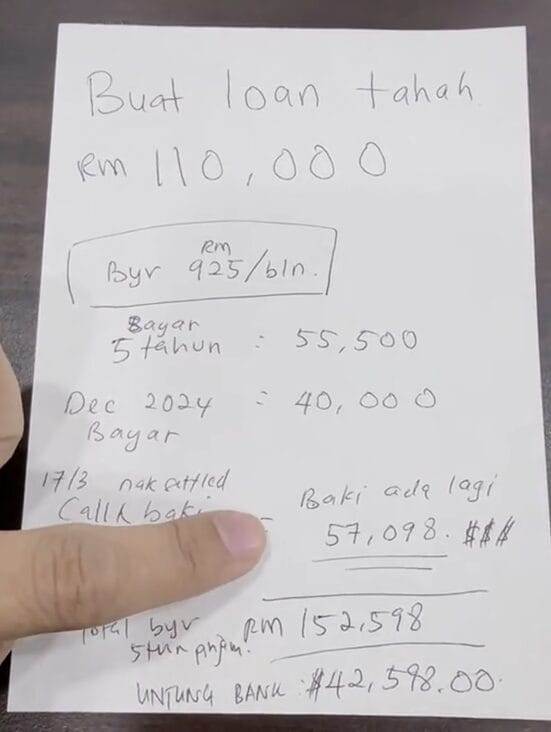 Buat loan tahah
Rm 110,000
Byr Rm 925/bln.
Bayar
5 tahun : 55,500
Dec 2024 = 40,000
Bayar
17/3 nak settled
Baki ada lagi
Call baki
57,098. $$$
Total byr RM 152,598
5thn
UNTUNG BANK : $42,598.00